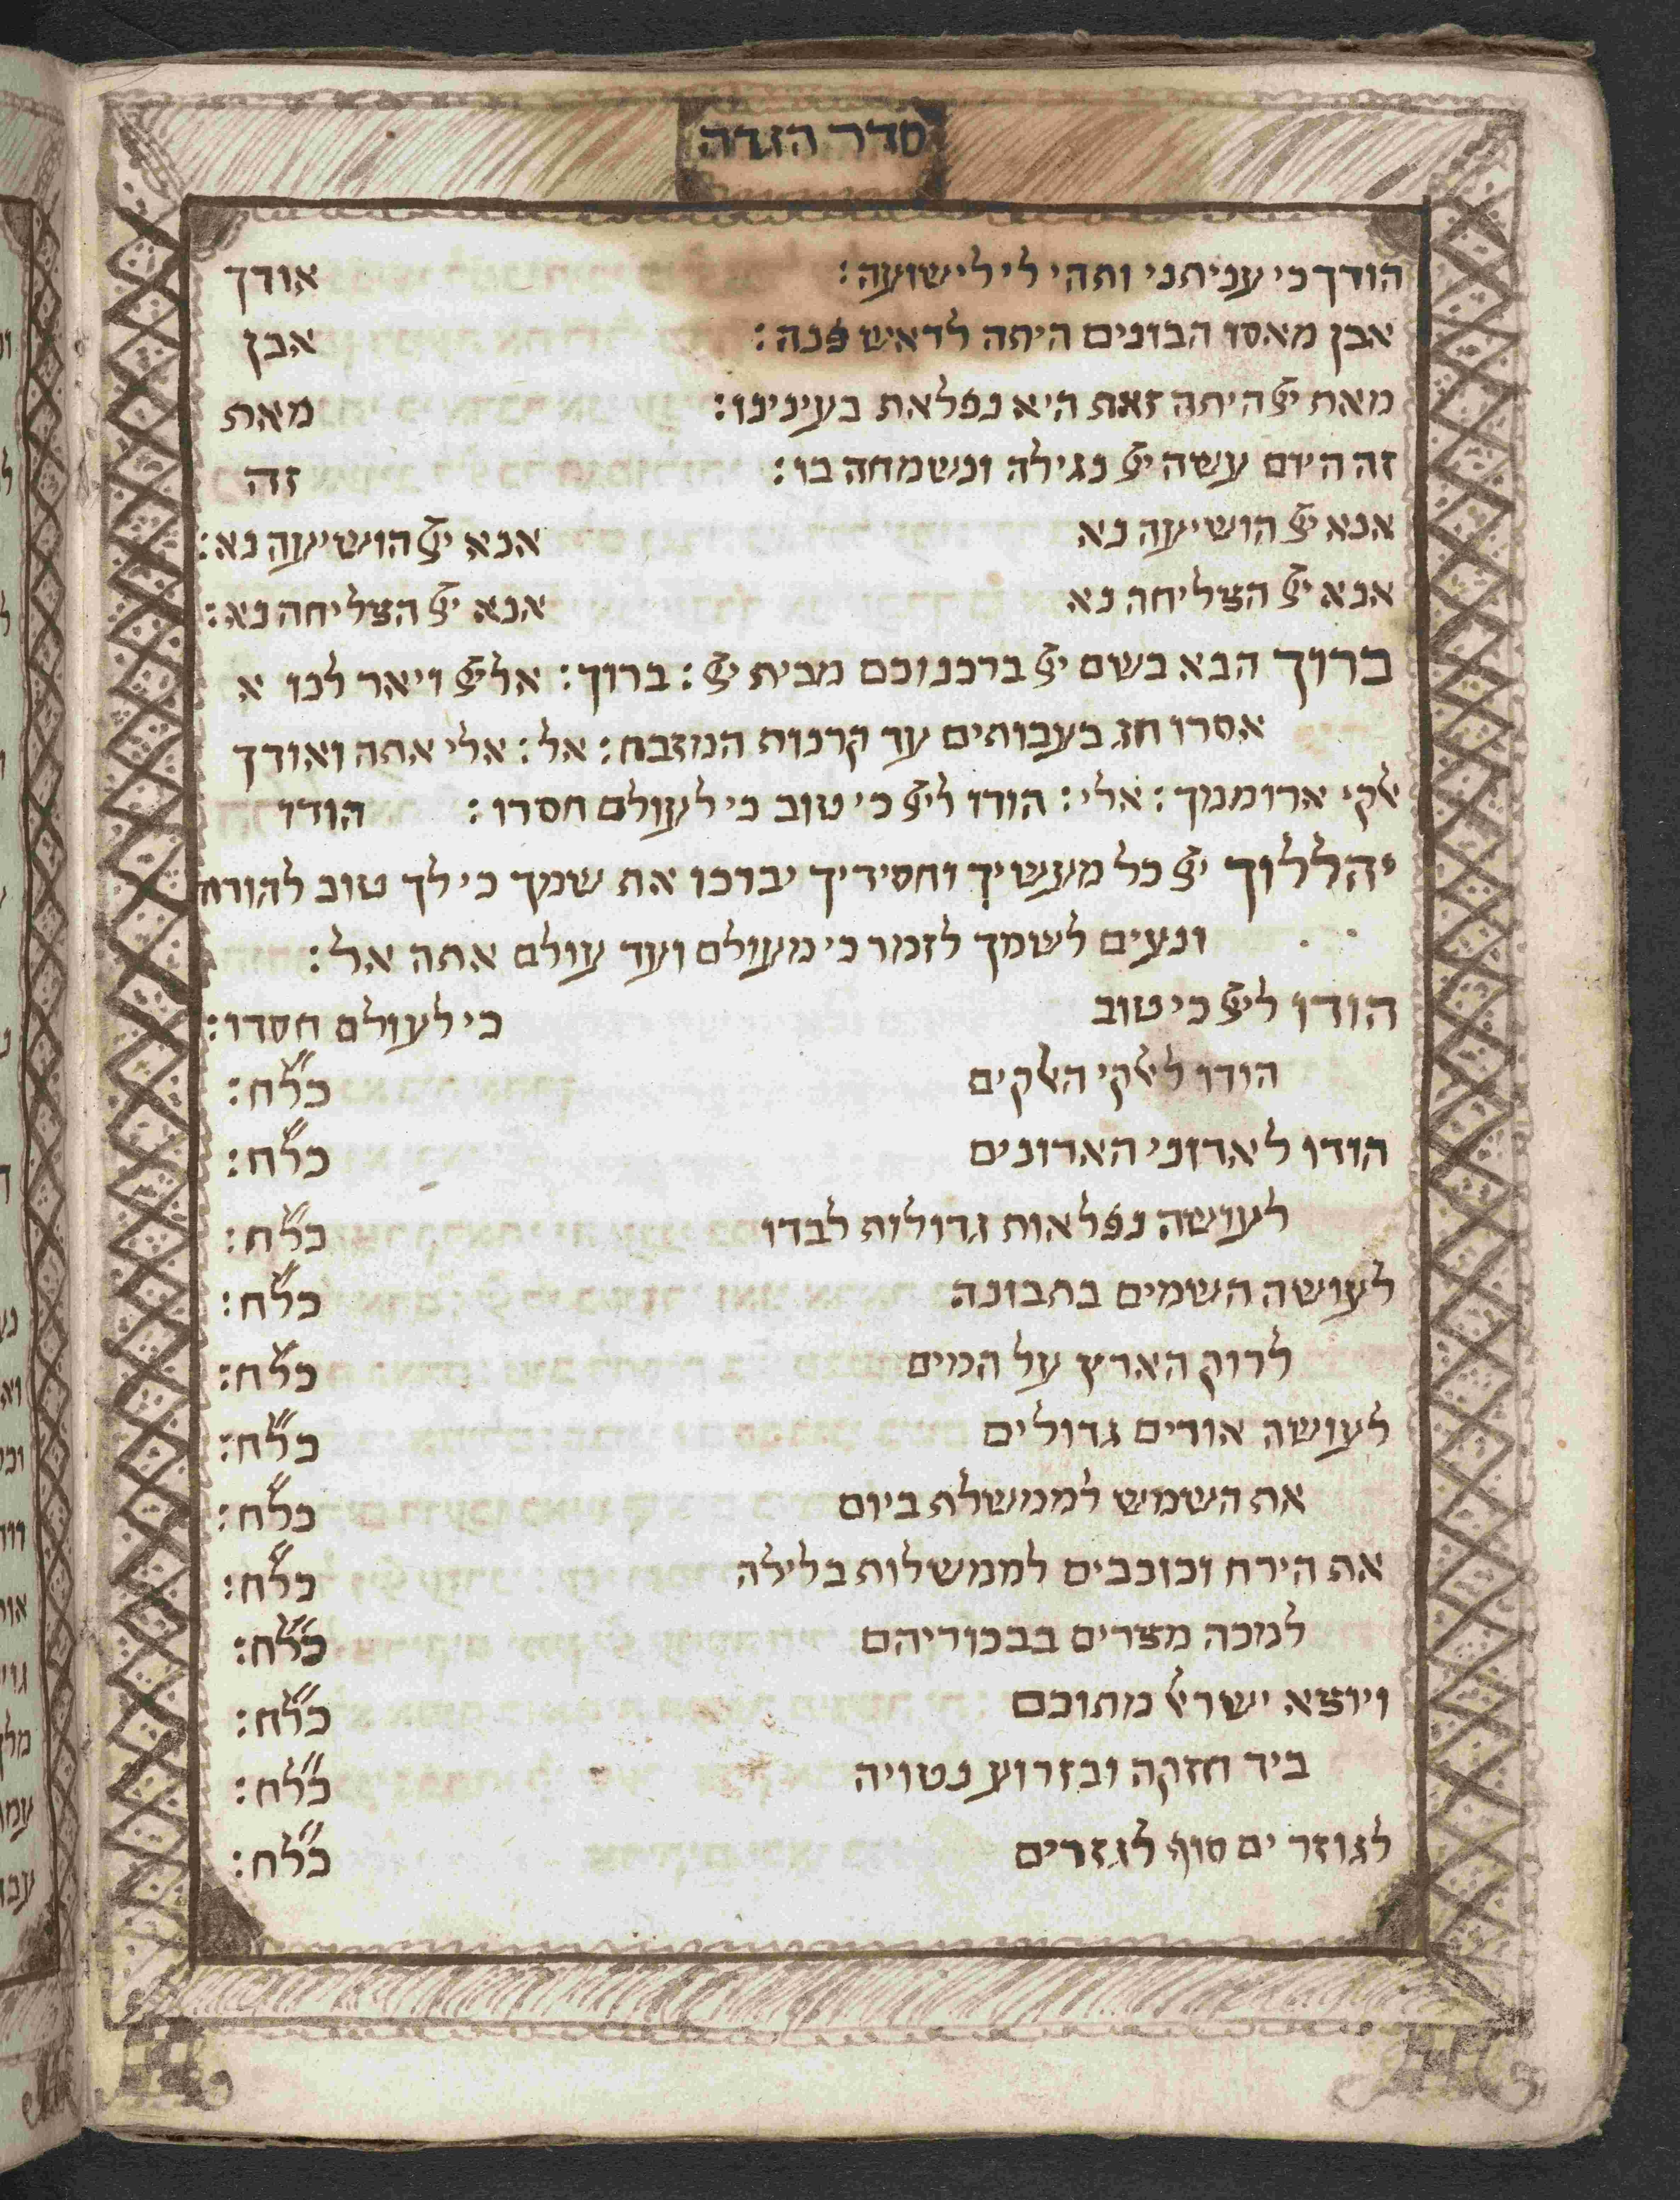 סדר הגדה
הודך כי עניתני ותהי לי לישועה: אודך
אבן מאסו הבונים היתה לראש פנה: אבן
מאת יי היתה זאת היא נפלאת בעינינו: מאת
זה היום עשה יי נגילה ונשמחה בו: זה
אנא יי הושיעה נא אנא יי הושיעה נא:
אנא יי הצליחה נא אנא יי הצליחה נא:
ברוך הבא בשם יי ברכנוכם מבית יי: ברוך: אל יי ויאר לנו א
אסרו חג בעבותים עד קרנות המזבח: אל: אלי אתה ואודך
אלקי ארוממך: אלי: הודו ליי כי טוב כי לעולם חסדו: הודו
יהללוך יי כל מעשיך וחסידיך יברכו את שמך כי לך טוב להודות
ונעים לשמך לזמר כי מעולם ועד עולם אתה אל:
הודו ליי כי טוב כי לעולם חסדו:
הודו לאלקי האלקים כל״ח:
הודו לאדוני האדונים כל״ח:
לעושה נפלאות גדולות לבדו כל״ח:
לעושה השמים בתבונה כל״ח:
לרוק הארץ על המים כל״ח:
לעושה אורים גדולים כל״ח:
את השמש לממשלת ביום כל״ח:
את הירח וכוכבים לממשלות בלילה כל״ח:
למכה מצרים בבכוריהם כל״ח:
ויוצא ישראל מתוכם כל״ח:
ביד חזקה ובזרוע נטויה כל״ח:
לגוזר ים סוף לגזרים כל״ח: